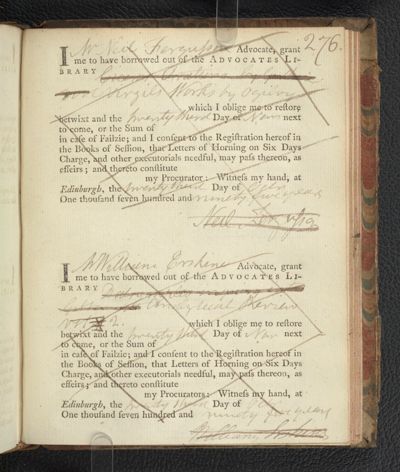 276.
I Mr Neil Fergusson Advocate, grant
me to have borrowed out of the ADVOCATES LI-
BRARY
Virgils Works by Ogilvy
which I oblige me to restore
betwixt and the twenty third Day of Novr next
to come, or the Sum of
in case of Failzie; and I consent to the Registration hereof in
the Books of Session, that Letters of Horning on Six Days
Charge, and other executorials needful, may pass thereon, as
effeirs; and thereto constitute
my Procurators: Witness my hand, at
Edinburgh, the twenty third Day of
One thousand seven hundred and ninety five years
Neil Fergusson
I Mr William Erskine Advocate, grant
me to have borrowed out of the ADVOCATES LI-
BRARY
Analytical Review
vol 2. which I oblige me to restore
betwixt and the twenty third Day of Nov next
to come, or the Sum of
in case of Failzie; and I consent to the Registration hereof in
the Books of Session, that Letters of Horning on Six Days
Charge, and other executorials needful, may pass thereon, as
effeirs; and thereto constitute
my Procurators: Witness my hand, at
Edinburgh, the twenty third Day of
One thousand seven hundred and ninety five years
William Erskine